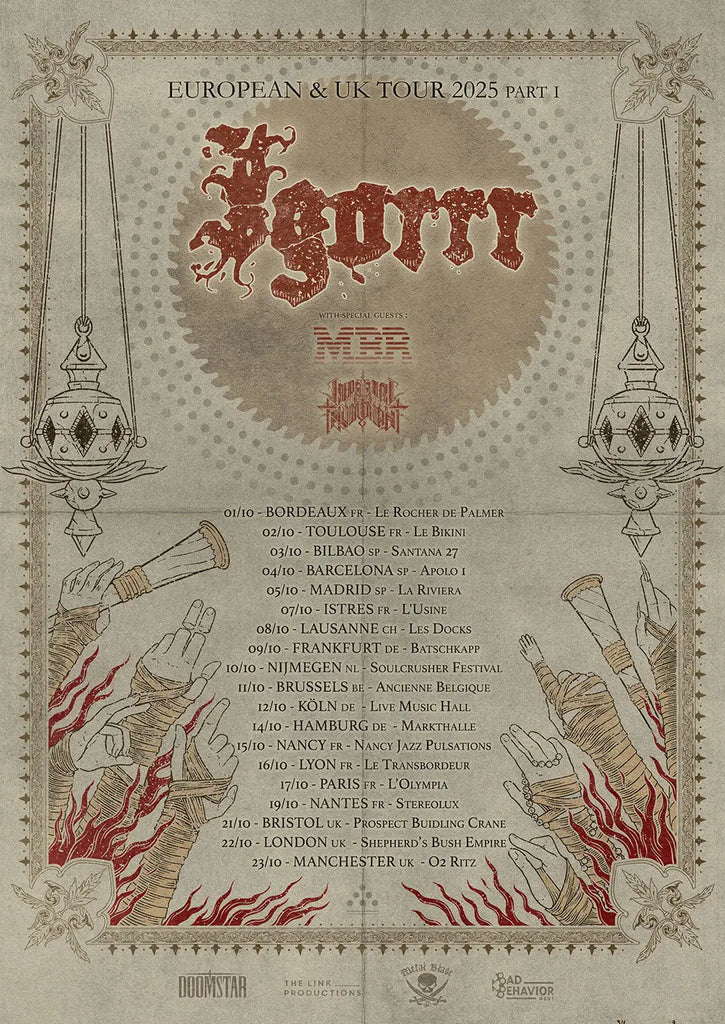 EUROPEAN & UK TOUR 2025 PART 1
Igorrr
WITH SPECIAL GUESTS :
MBR
IMPERIAL TRIUMPHANT
01/10 - BORDEAUX FR - LE ROCHER DE PALMER
02/10 - TOULOUSE FR - LE BIKINI
03/10 - BILBAO SP - SANTANA 27
04/10 - BARCELONA SP - APOLO 1
05/10 - MADRID SP - LA RIVIERA
07/10 - ISTRES FR - L'USINE
08/10 - LAUSANNE CH - LES DOCKS
09/10 - FRANKFURT DE - BATSCHKAPP
10/10 - NIJMEGEN NL - SOULCRUSHER FESTIVAL
11/10 - BRUSSELS BE - ANCIENNE BELGIQUE
12/10 - KÖLN DE - LIVE MUSIC HALL
14/10 - HAMBURG DE - MARKTHALLE
15/10 - NANCY FR - NANCY JAZZ PULSATIONS
16/10 - LYON FR - LE TRANSBORDEUR
17/10 - PARIS FR - L'OLYMPIA
19/10 - NANTES FR - STEREOLUX
21/10 - BRISTOL UK - PROSPECT BUIDLING CRANE
22/10 - LONDON UK - SHEPHERD'S BUSH EMPIRE
23/10 - MANCHESTER UK - O2 RITZ
DOOMSTAR
THE LINK PRODUCTIONS
Metal Blade
BAD BEHAVIOR